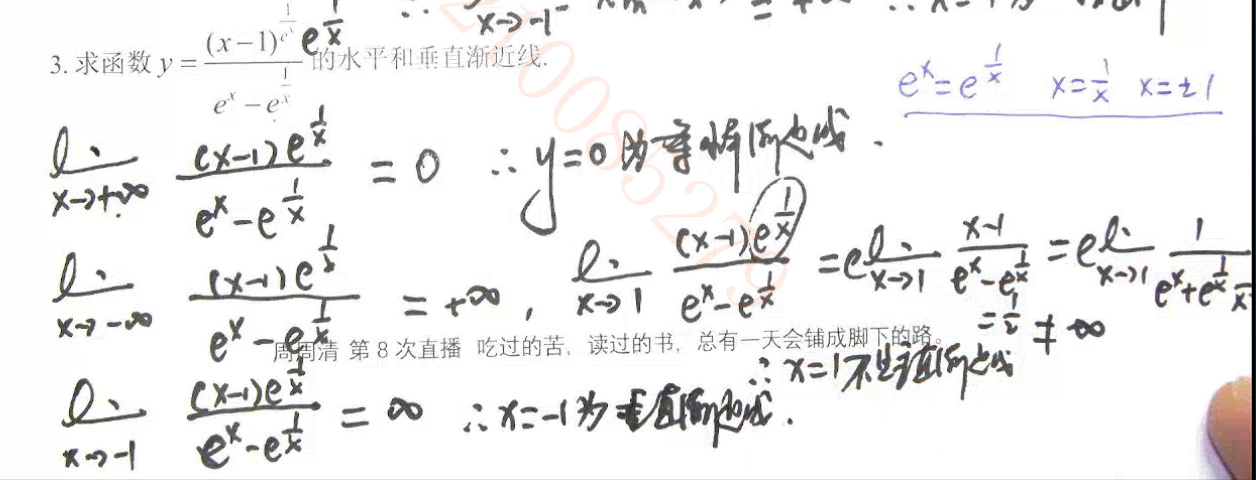 x→-1⁻ = +∞ ∴ x=-1为
3. 求函数 y = (x-1)e^{1/x} / (e^x - e^{1/x}) 的水平和垂直渐近线.
e^x = e^{1/x} x = 1/x x = ±1
lim_{x→+∞} (x-1)e^{1/x} / (e^x - e^{1/x}) = 0 ∴ y=0 为水平渐近线.
lim_{x→-∞} (x-1)e^{1/x} / (e^x - e^{1/x}) = +∞, lim_{x→1} (x-1)e^{1/x} / (e^x - e^{1/x}) = e lim_{x→1} (x-1) / (e^x - e^{1/x}) = e lim_{x→1} 1 / (e^x + e^{1/x} 1/x
= 1/2 ≠ ∞
周周清 第 8 次直播 吃过的苦, 读过的书, 总有一天会铺成脚下的路。
∴ x=1 不是垂直渐近线
lim_{x→-1} (x-1)e^{1/x} / (e^x - e^{1/x}) = ∞ ∴ x=-1为垂直渐近线.